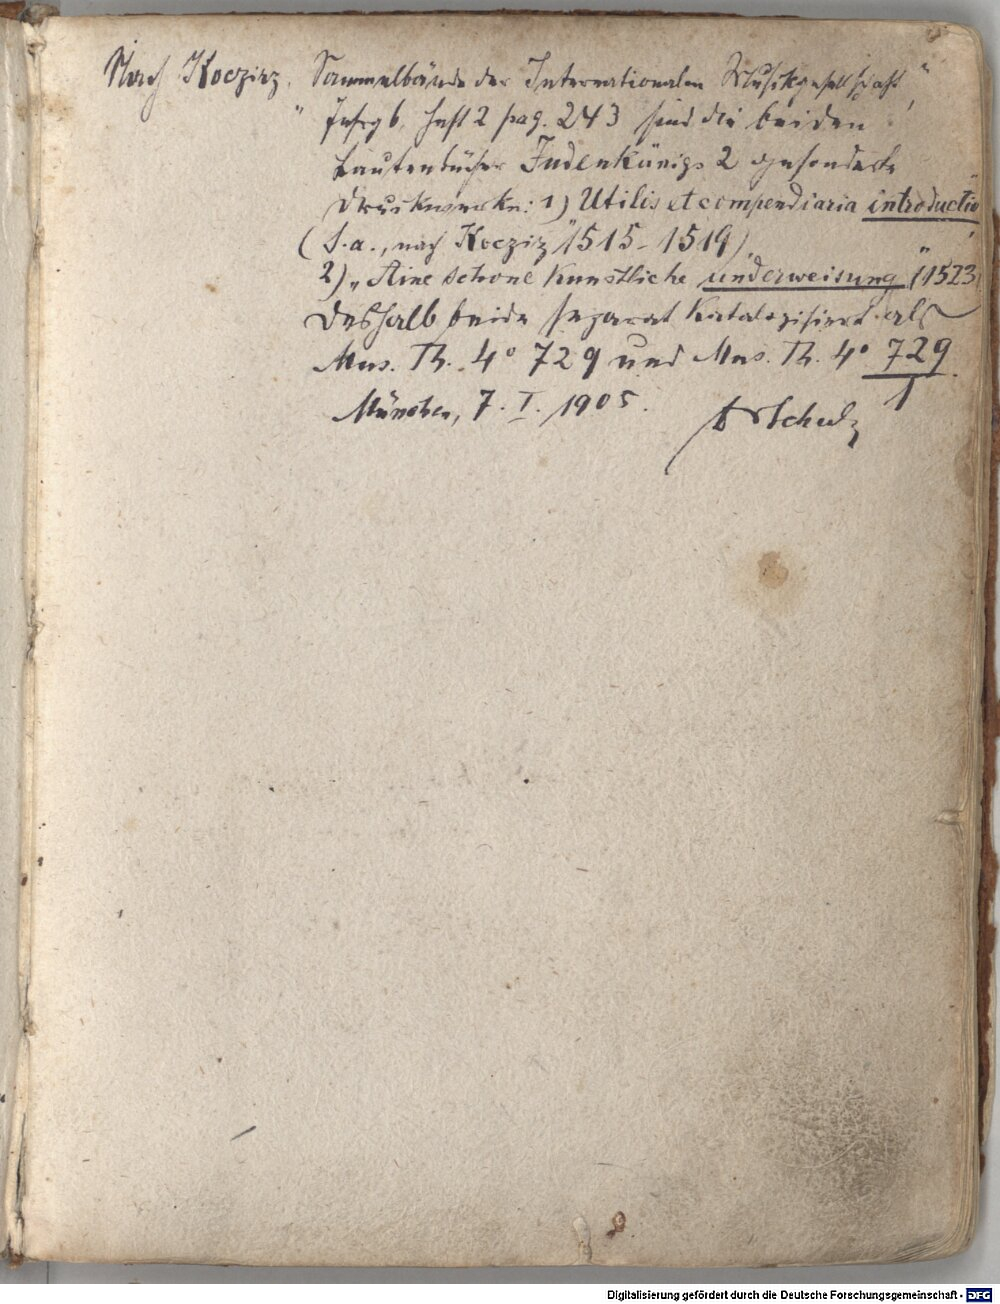 Nach Koczirz, Sammelbände der Internationalen Musikgesellschaft"
" Jahrg 6, Heft 2 pag. 243 sind die beiden
Lautenbücher Judenkünigs 2 gesonderte
Druckwerke: 1) Utilis et compendiaria introductio"
(S. a., nach Koczirz 1515-1519),
2) „Aine schone kunstliche underweisung" (1523)
Deshalb beide separat katalogisiert als
Mus. Th. 4° 729 und Mus. Th. 4° 729
1
München, 7. I. 1905. Schulz
Digitalisierung gefördert durch die Deutsche Forschungsgemeinschaft - DFG